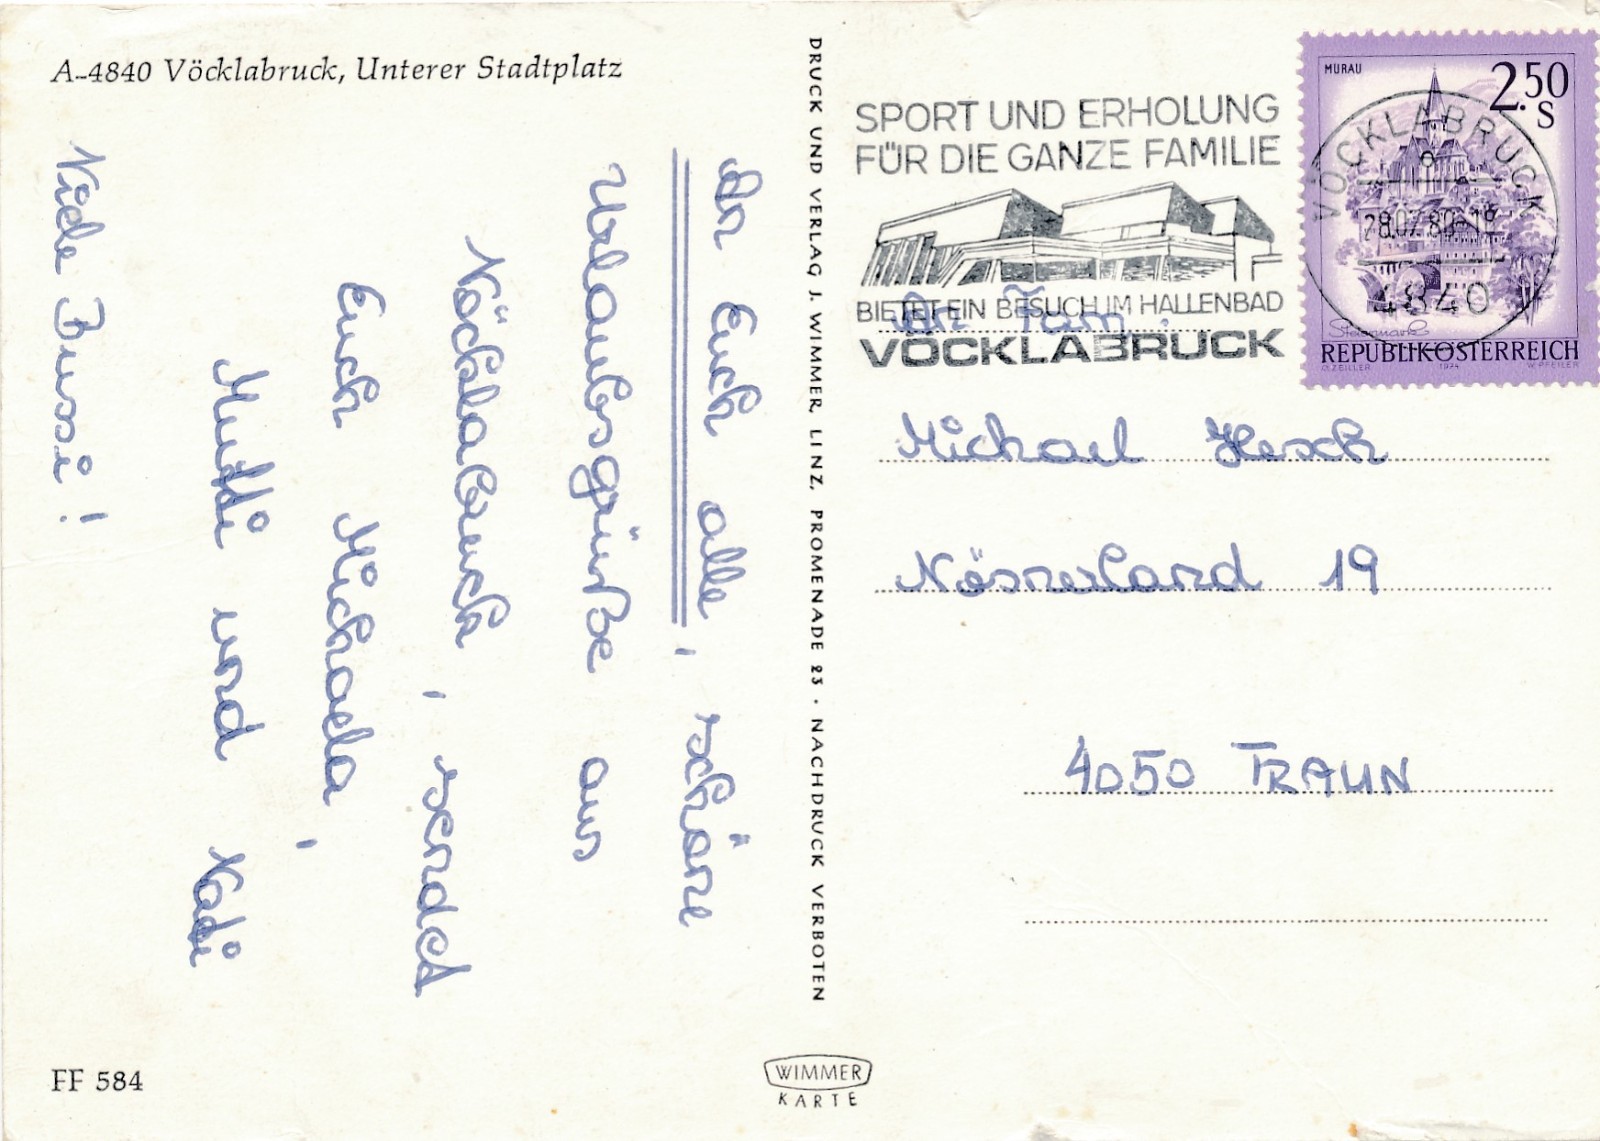 A-4840 Vöcklabruck, Unterer Stadtplatz
An Euch alle, schöne
Urlaubsgrüße aus
Vöcklabruck, sendet
Euch Michaela,
Mutti und Nadi
Viele Bussi!
FF 584
DRUCK UND VERLAG J. WIMMER, LINZ, PROMENADE 23 · NACHDRUCK VERBOTEN
WIMMER
KARTE
SPORT UND ERHOLUNG
FÜR DIE GANZE FAMILIE
BIETET EIN BESUCH IM HALLENBAD
VÖCKLABRUCK
MURAU
2.50
S
VÖCKLABRUCK
28.07.80-18
4840
Steiermark
REPUBLIK ÖSTERREICH
O. ZEILLER 1974 W. PFEILER
An Fam.
Michael Hesch
Nösnerland 19
4050 TRAUN